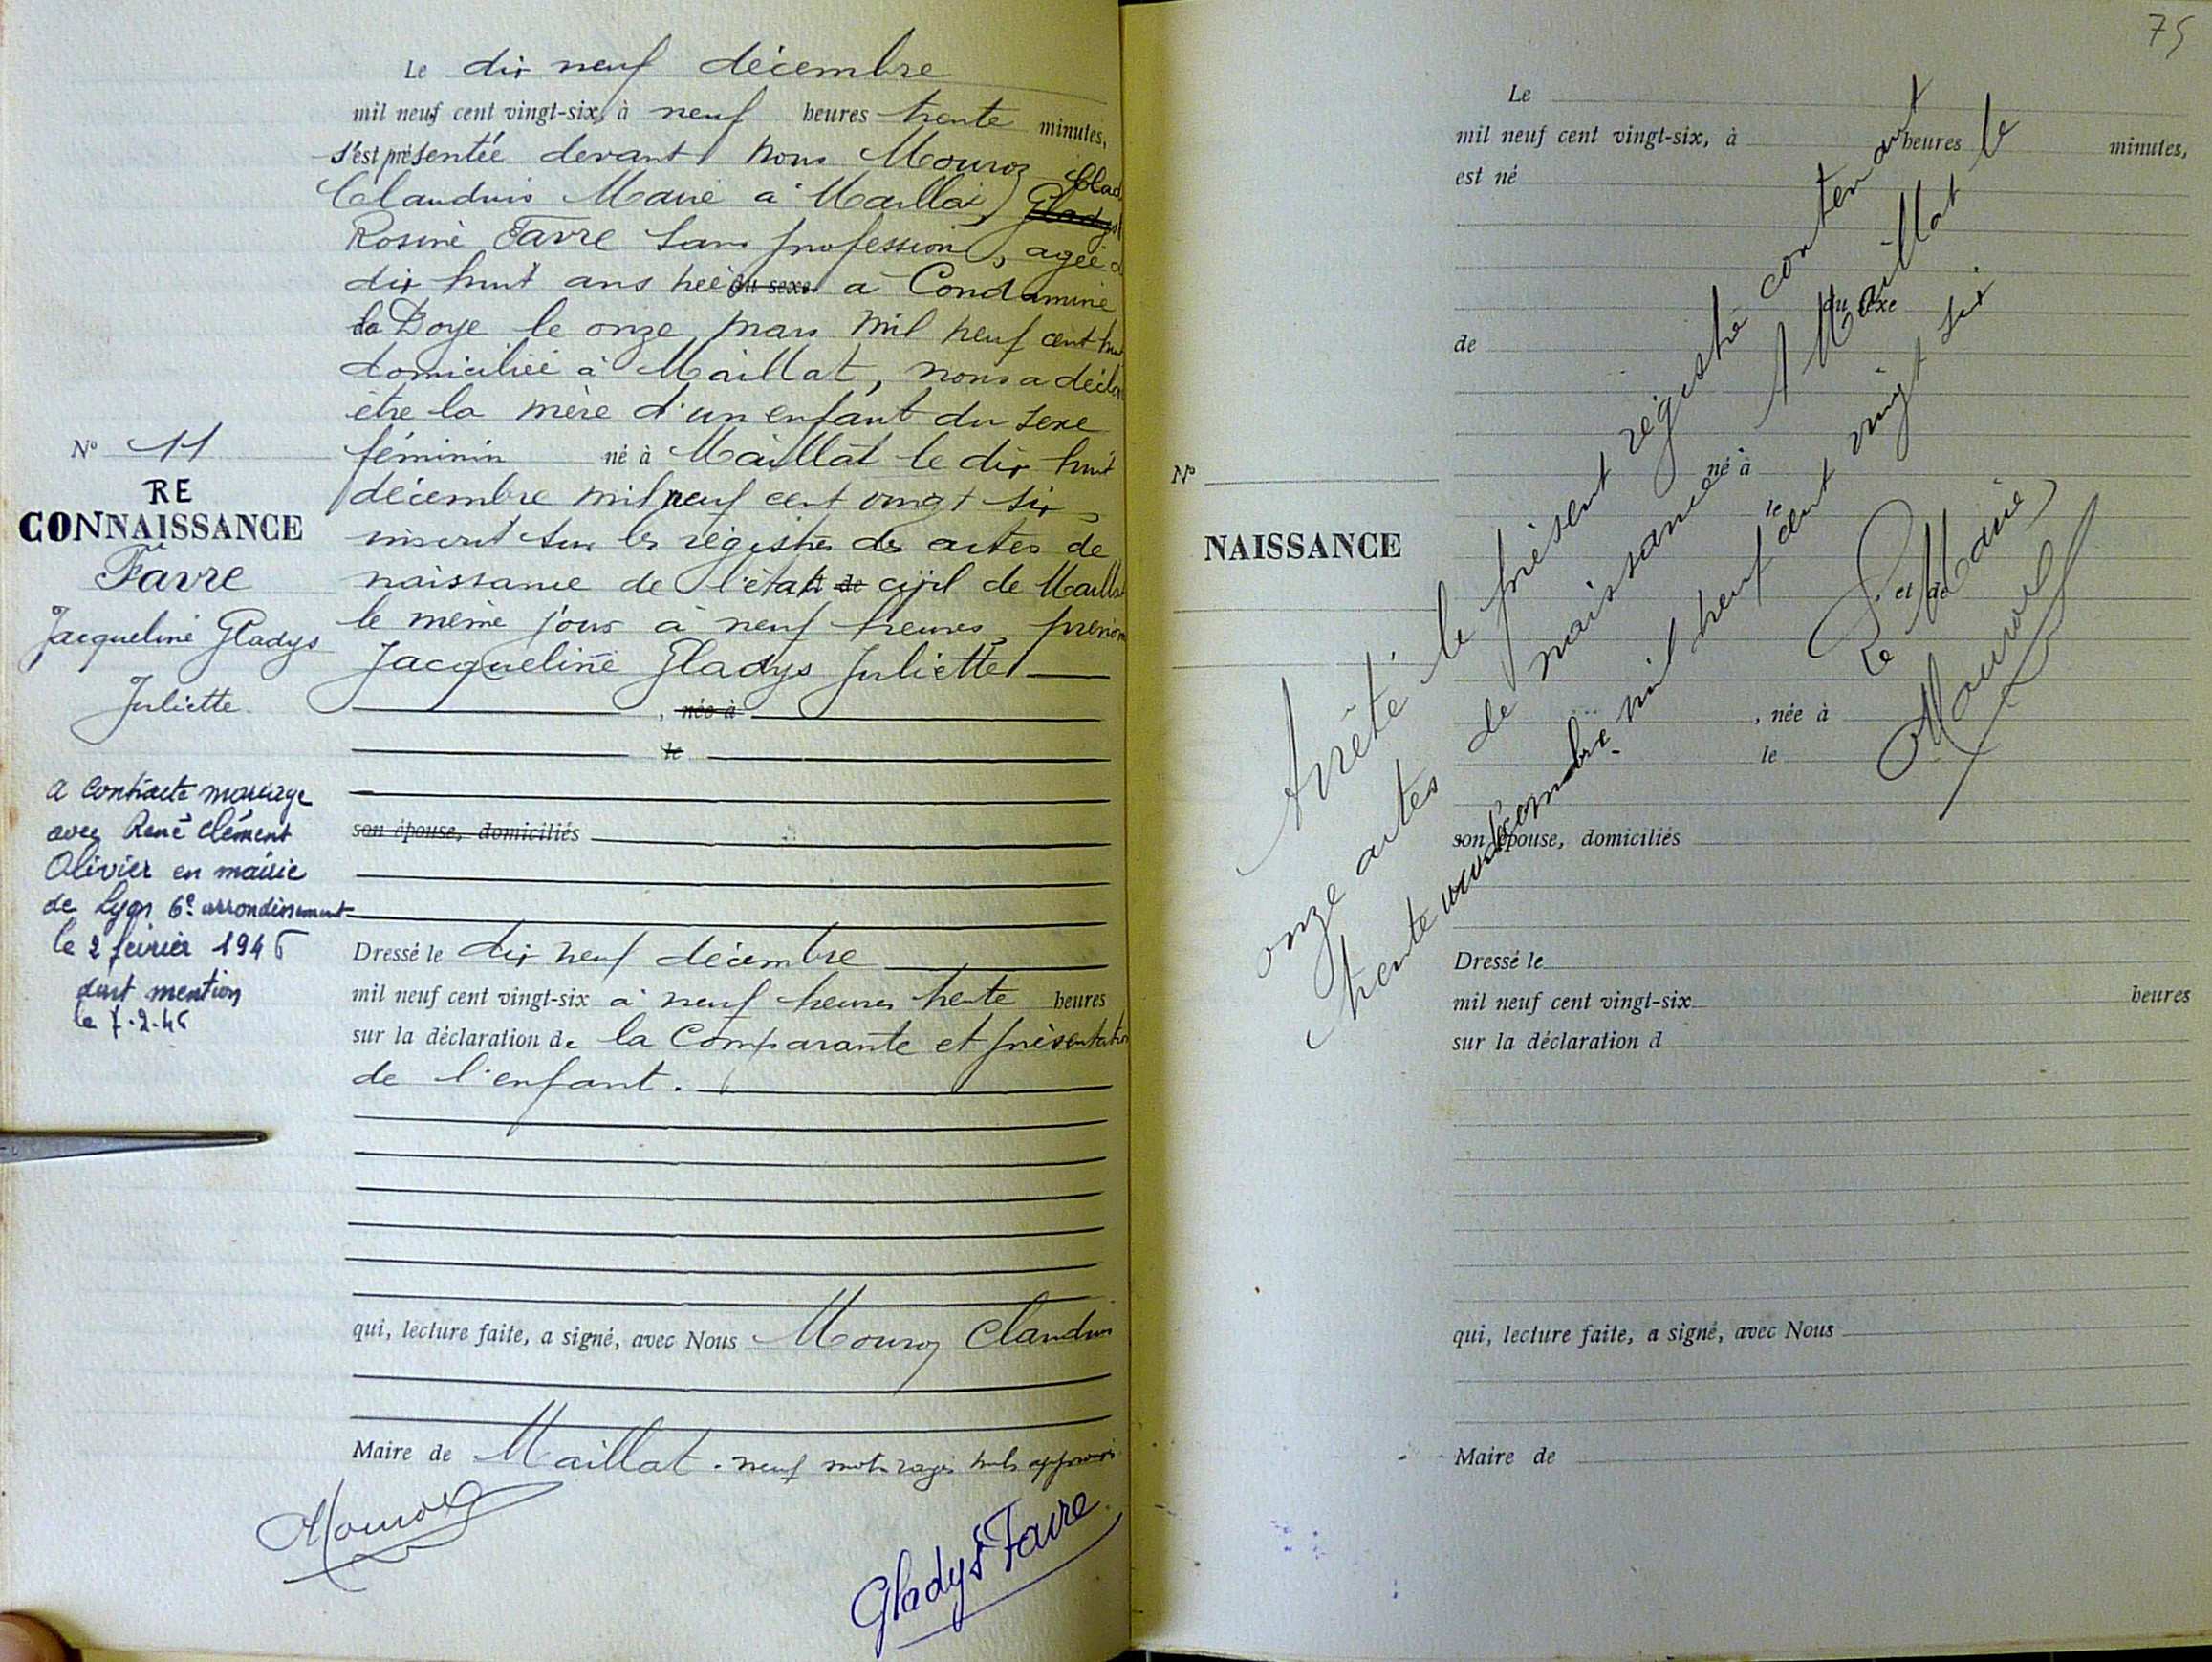 Le dix neuf décembre
mil neuf cent vingt-six, à neuf heures trente minutes,
s'est présentée devant nous Mouroz
Claudius Maire à Maillat, Gladys
Rosine Favre sans profession, agée
dix huit ans née du sexe à Condamine
la Doye le onze mars mil neuf cent huit
domiciliée à Maillat, nous a déclaré
être la mère d'un enfant du sexe
féminin né à Maillat le dix huit
décembre mil neuf cent vingt six
inscrit sur les registres des actes de
naissance de l'état de civil de Maillat
le même jour à neuf heures, prénom
Jacqueline Gladys Juliette
, née à
le
son épouse, domiciliés
Dressé le dix neuf décembre
mil neuf cent vingt-six à neuf heures trente heures
sur la déclaration de la Comparante et présentation
de l'enfant.
qui, lecture faite, a signé, avec Nous Mouroz Claudius
Maire de Maillat. neuf mots rayés nuls approuvés
Mouroz
Gladys Favre
N° 11
RE
CONNAISSANCE
Favre
Jacqueline Gladys
Juliette.
a contracté mariage
avec René Clément
Olivier en mairie
de Lyon 6e arrondissement
le 2 février 1946
dont mention
le 7.2.46
75
Le
mil neuf cent vingt-six, à heures minutes,
est né
du sexe
de
né à
N°
le
NAISSANCE
et de
, née à
le
son épouse, domiciliés
Dressé le
mil neuf cent vingt-six heures
sur la déclaration d
qui, lecture faite, a signé, avec Nous
Maire de
Arrêté le présent registre contenant
onze actes de naissance A Maillat le
trente un décembre mil neuf cent vingt six
Le Maire
Mouroz